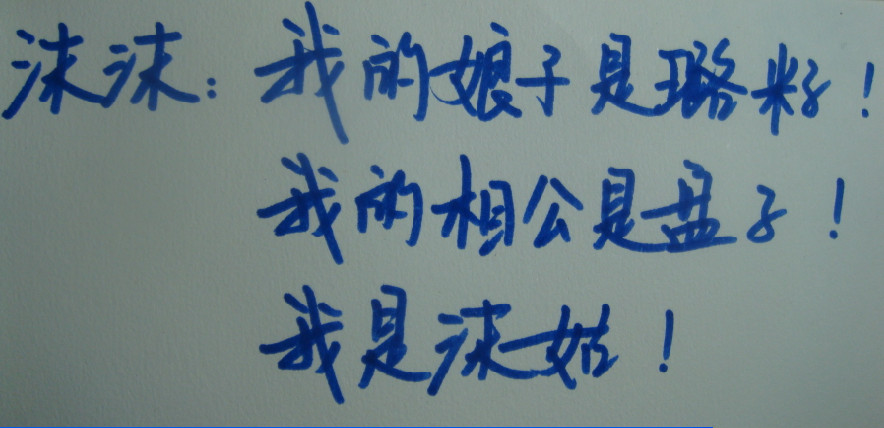 沫沫：我的娘子是璐籽！
我的相公是盘子！
我是沫姑！